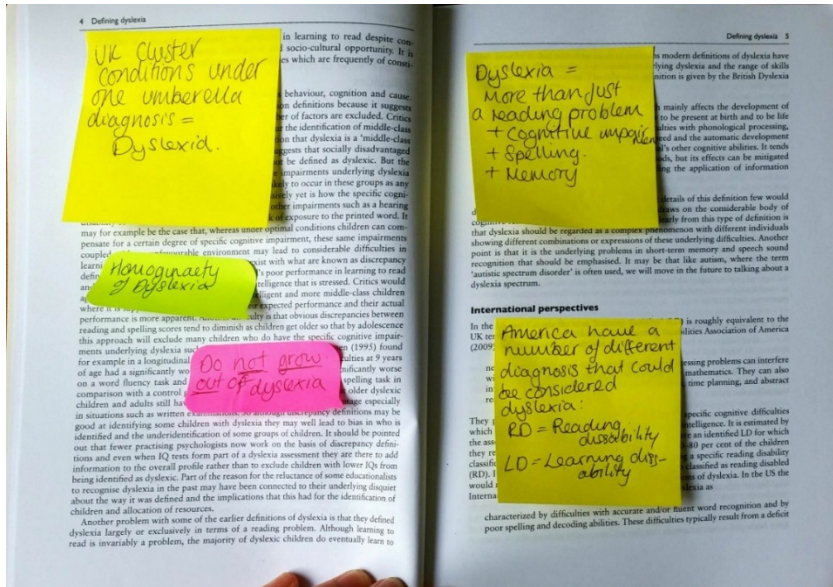 4 Defining dyslexia
UK Cluster
conditions under
one umberella
diagnosis =
Dyslexia.
in learning to read despite con-
socio-cultural opportunity. It is
es which are frequently of consti-
behaviour, cognition and cause.
on definitions because it suggests
er of factors are excluded. Critics
r the identification of middle-class
on that dyslexia is a 'middle-class
ggests that socially disadvantaged
ot be defined as dyslexic. But the
impairments underlying dyslexia
kely to occur in these groups as any
ively yet is how the specific cogni-
other impairments such as a hearing
k of exposure to the printed word. It
may for example be the case that, whereas under optimal conditions children can com-
pensate for a certain degree of specific cognitive impairment, these same impairments
coupled favourable environment may lead to considerable difficulties in
learni exist with what are known as discrepancy
defin 's poor performance in learning to read
an telligence that is stressed. Critics would
ag elligent and more middle-class children
where it is expected performance and their actual
Homoginaety
of Dyslexia
performance is more apparent. culty is that obvious discrepancies between
reading and spelling scores tend to diminish as children get older so that by adolescence
this approach will exclude many children who do have the specific cognitive impair-
ments underlying dyslexia suc en (1995) found
for example in a longitudinal culties at 9 years
of age had a significantly wo nificantly worse
on a word fluency task and spelling task in
comparison with a control older dyslexic
children and adults still ha age especially
Do not grow
out of dyslexia
in situations such as written discrepancy definitions may be
good at identifying some children with dyslexia they may well lead to bias in who is
identified and the underidentification of some groups of children. It should be pointed
out that fewer practising psychologists now work on the basis of discrepancy defini-
tions and even when IQ tests form part of a dyslexia assessment they are there to add
information to the overall profile rather than to exclude children with lower IQs from
being identified as dyslexic. Part of the reason for the reluctance of some educationalists
to recognise dyslexia in the past may have been connected to their underlying disquiet
about the way it was defined and the implications that this had for the identification of
children and allocation of resources.
Another problem with some of the earlier definitions of dyslexia is that they defined
dyslexia largely or exclusively in terms of a reading problem. Although learning to
read is invariably a problem, the majority of dyslexic children do eventually learn to
Defining dyslexia 5
Dyslexia =
more than just
a reading problem
+ Cognitive impairment
+ Spelling.
+ Memory
s modern definitions of dyslexia have
lying dyslexia and the range of skills
nition is given by the British Dyslexia
mainly affects the development of
to be present at birth and to be life
ulties with phonological processing,
eed and the automatic development
al's other cognitive abilities. It tends
ds, but its effects can be mitigated
ing the application of information
details of this definition few would
draws on the considerable body of
early from this type of definition is
that dyslexia should be regarded as a complex phenomenon with different individuals
showing different combinations or expressions of these underlying difficulties. Another
point is that it is the underlying problems in short-term memory and speech sound
recognition that should be emphasised. It may be that like autism, where the term
'autistic spectrum disorder' is often used, we will move in the future to talking about a
dyslexia spectrum.
International perspectives
In the ) is roughly equivalent to the
UK te ilities Association of America
(2009)
America have a
number of different
diagnosis that could
be considered
dyslexia:
RD = Reading
dissability
LD = Learning diss-
ability
essing problems can interfere
mathematics. They can also
time planning, and abstract
They pecific cognitive difficulties
which ntelligence. It is estimated by
the ass e an identified LD for which
they re 0-80 per cent of the children
classifi g a specific reading disability
(RD). I classified as reading disabled
would ms of dyslexia. In the US the
Interna lexia as
characterized by difficulties with accurate and/or fluent word recognition and by
poor spelling and decoding abilities. These difficulties typically result from a deficit